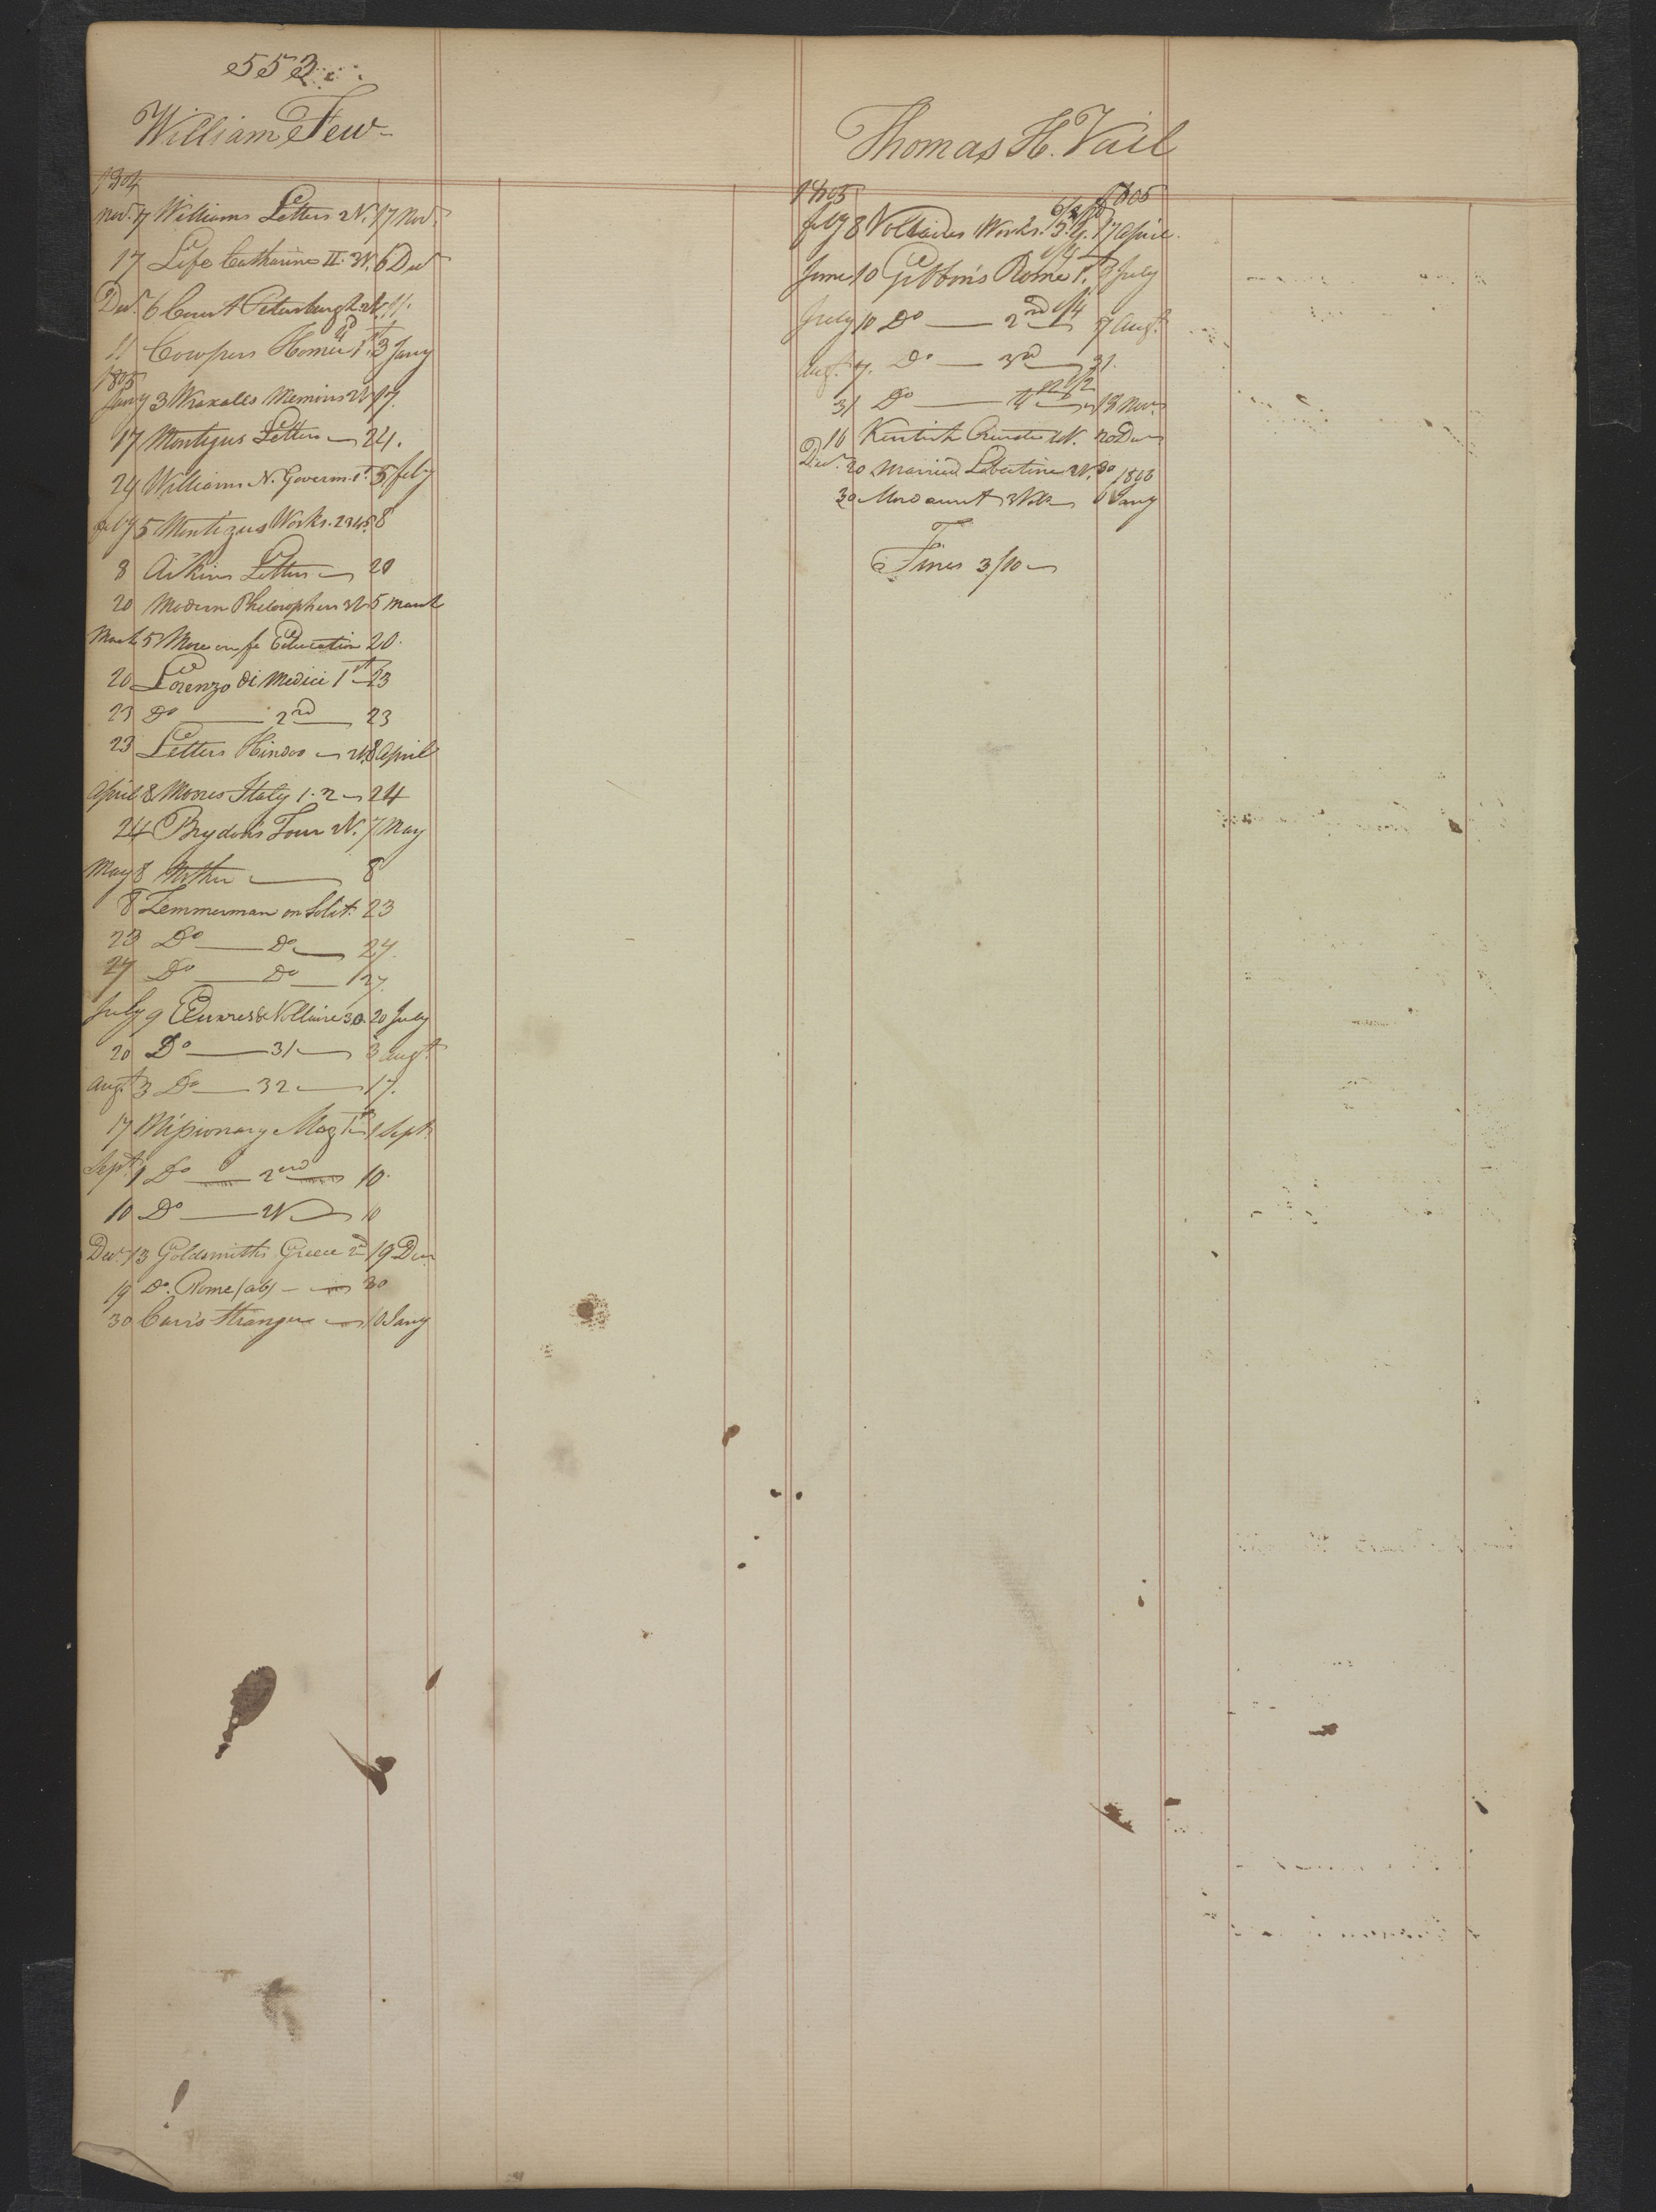 553
William Few
1804
Nov. 7 Williams Letters 2V. 17 Nov.
17 Life Catharine II. 3V. 6 Decr
Decr. 6 Court Petersburgh 2V. 11.
11 Cowpers Homer 1st 3 Jany
1805
Jany 3 Wraxalls Memoirs 2V 17.
17 Montagus Letters 24.
24 Williams N. Governt. 1st 5 feby
feby 5 Montagus Works. 2345 8
8 Aikins Letters 20
20 Modern Philosophers 3V 5 March
March 5 More on fe Education 20.
20 Lorenzo di Medici 1st 23
23 Do 2nd 23
23 Letters Hindoo 2V. 8 April
April 8 Moores Italy 1. 2 24
24 Brydon's Tour 2V. 7 May
May 8 8
8 Zemmerman on Solit. 23
23 Do Do 27.
27 Do Do 27.
July 9 Œuvres de Voltaire 30. 20 July
20 Do 31 3 Augt.
Augt. 3 Do 32 17.
17 Missionary Mag 1st 1 Sept.
Sept. 1 Do 2nd 10.
10 Do 2V 10
Decr. 13 Goldsmiths Greece 2d 19 Decr.
19 Do. Rome (ab) 30
30 Carr's Stranger 10 Jany
Thomas H. Vail
1805 1805
feby 8 Voltaires Works. 3. 4. 17 April.
June 10 Gibbon's Rome 1st. July
July 10 Do 2nd 1/4 7 Augt.
Augt. 7. Do 3rd 31.
31 Do 4th 2/2 18 Novr.
Decr. 16 Kentish 2V. 20 Decr
20 Married Libertine 2V. 30
1806
30 Mordaunt 3 Vols Jany
Fines 3/10